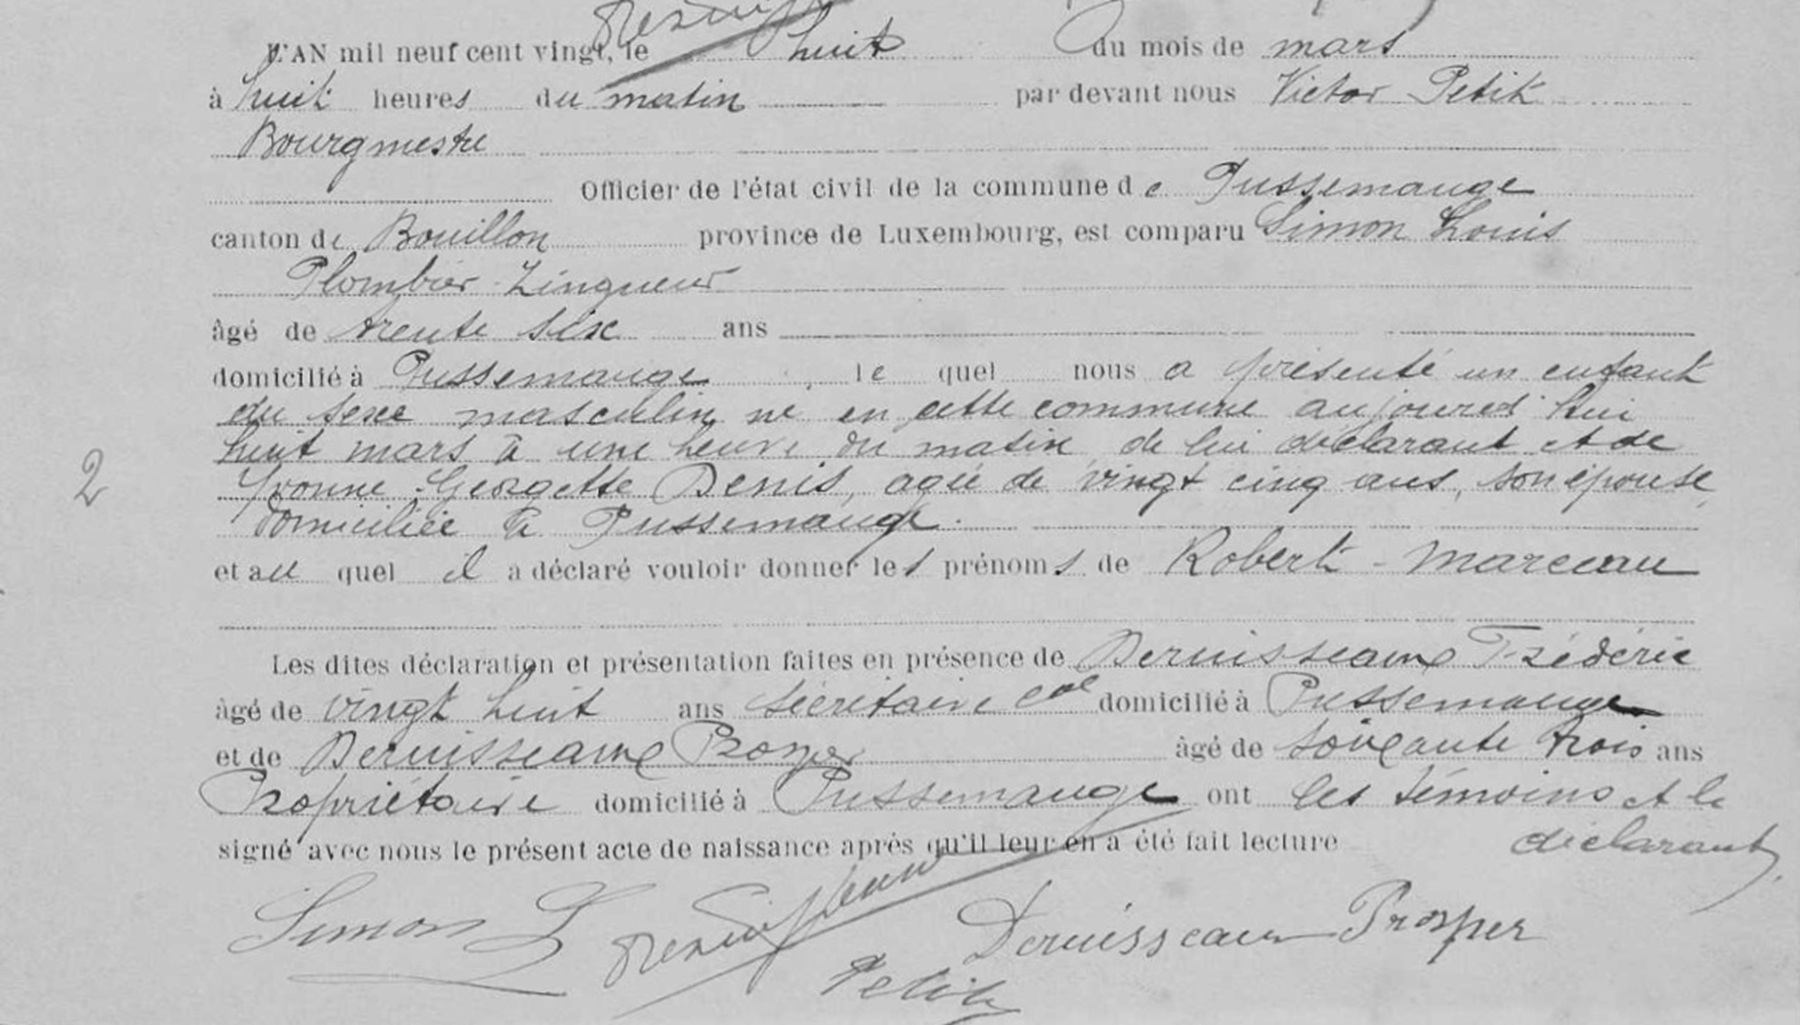 L'AN mil neuf cent vingt, le huit du mois de mars
à huit heures du matin par devant nous Victor Petit
Bourgmestre
Officier de l'état civil de la commune de Pussemange
canton de Bouillon province de Luxembourg, est comparu Simon Louis
Plombier-Zingueur
âgé de trente six ans
domicilié à Pussemange, le quel nous a présenté un enfant
du sexe masculin né en cette commune aujourd'hui
huit mars à une heure du matin de lui déclarant et de
Yvonne Georgette Denis, agée de vingt cinq ans, son épouse,
domiciliée à Pussemange.
2
et au quel il a déclaré vouloir donner les prénoms de Robert-Marceau
Les dites déclaration et présentation faites en présence de Deruisseaux Frédéric
âgé de vingt huit ans Sécrétaire Cal domicilié à Pussemange
et de Deruisseaux Prosper âgé de soixante trois ans
Propriétaire domicilié à Pussemange ont les témoins et le
déclarant
signé avec nous le présent acte de naissance après qu'il leur en a été fait lecture
Simon L
Deruisseaux Prosper
Petit